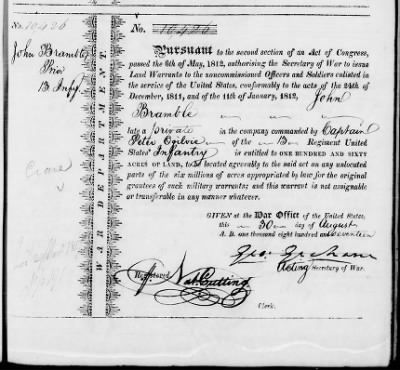 No. 10426
John Bramble
Priv
13 Infy.
WAR DEPARTMENT.
No. 10426
Pursuant to the second section of an Act of Congress,
passed the 6th of May, 1812, authorising the Secretary of War to issue
Land Warrants to the noncommissioned Officers and Soldiers enlisted in
the service of the United States, conformably to the acts of the 24th of
December, 1811, and of the 11th of January, 1812, John
Bramble
late a private
in the company commanded by Captain
Peter Ogilvie of the 13 Regiment United
States' Infantry is entitled to ONE HUNDRED AND SIXTY
ACRES OF LAND, to be located agreeably to the said act on any unlocated
parts of the six millions of acres appropriated by law for the original
grantees of such military warrants; and this warrant is not assignable
or transferable in any manner whatever.
GIVEN at the War Office of the United States,
this 30 day of August
A. D. one thousand eight hundred and seventeen
Geo: Graham
Acting Secretary of War.
Registered Nat Cutting
Clerk.